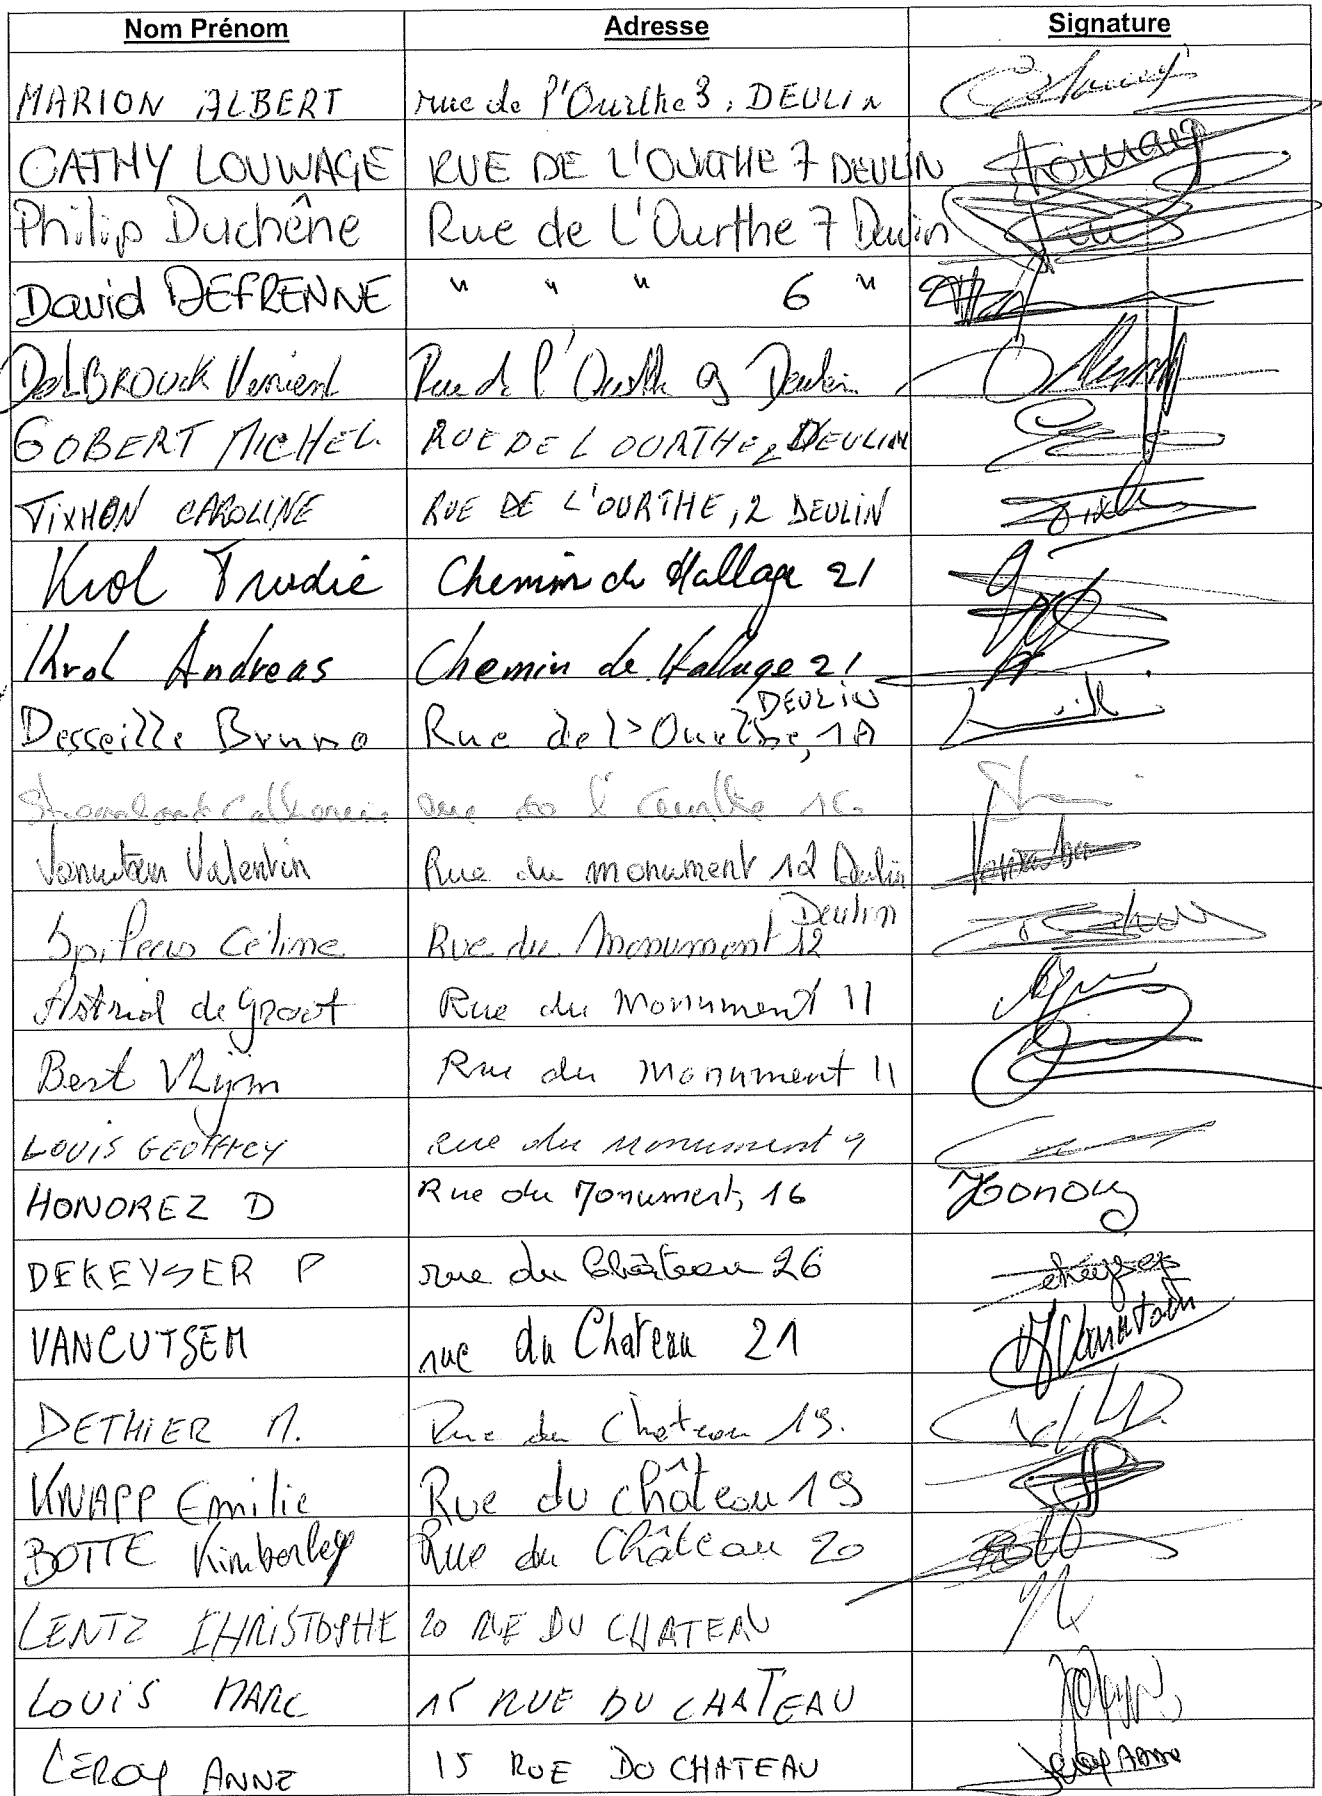 Nom Prénom Adresse Signature
MARION ALBERT rue de l'Ourthe 3, DEULIN
CATHY LOUWAGE RUE DE L'OURTHE 7 DEULIN
Philip Duchêne Rue de L'Ourthe 7 Deulin
David DEFRENNE " " " 6 "
DELBROUCK Rue de l'Ourthe 9 Deulin
GOBERT MICHEL RUE DE L OURTHE 2 DEULIN
TIXHON CAROLINE RUE DE L'OURTHE, 2 DEULIN
Krol Trudie Chemin de Hallage 21
Krol Andreas Chemin de Hallage 21
Desseille Bruno Rue de l'Ourthe, 1A DEULIN
rue de l'Ourthe
Valentin Rue du monument 12 Deulin
Céline Rue du Monument 12 Deulin
Astrid de Groot Rue du Monument 11
Bert Rue du Monument 11
LOUIS GEOFFREY rue du monument 9
HONOREZ D Rue du Monument, 16
DEKEYSER P rue du Château 26
VANCUTSEM rue du Chateau 21
DETHIER M. Rue du Chateau 19.
KNAPP Emilie Rue du château 19
BOTTE Kimberley Rue du Château 20
LENTZ CHRISTOPHE 20 RUE DU CHATEAU
LOUIS MARC 15 RUE DU CHATEAU
LEROY ANNE 15 RUE DU CHATEAU